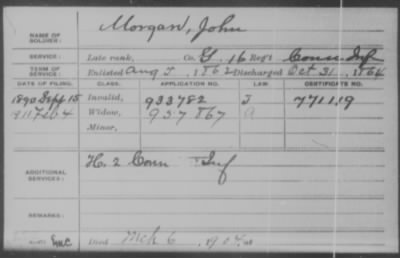 NAME OF SOLDIER: Morgan, John
SERVICE: Late rank, Co. G, 16 Reg't Conn Inf
TERM OF SERVICE: Enlisted Aug 7, 1862 Discharged Oct 31, 1864
DATE OF FILING. CLASS. APPLICATION NO. LAW. CERTIFICATE NO.
1890 Sept 15 Invalid, 933782 J 771119
Widow, 957867 A
Minor,
ADDITIONAL SERVICES: H. 2 Conn Inf
REMARKS:
Died Mch 6, 1904, at